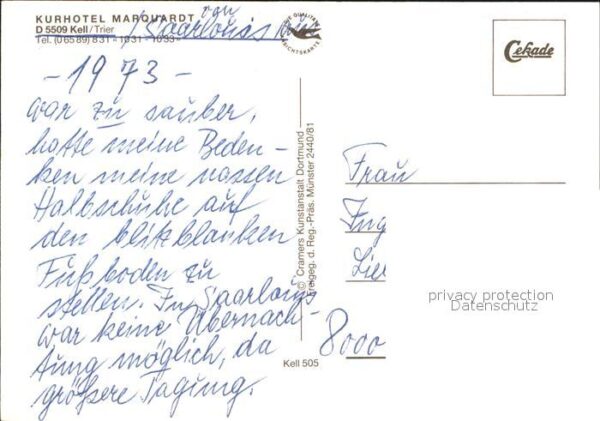 KURHOTEL MARQUARDT
D 5509 Kell/Trier
Tel. (06589) 831 - 1031 - 1033
von
Saarlouis
- 1973 -
war zu sauber,
hatte meine Beden-
ken meine nassen
Halbschuhe auf
den blitzblanken
Fußboden zu
stellen. In Saarlouis
war keine Übernach-
tung möglich, da
größere Tagung.
© Cramers Kunstanstalt Dortmund
freigeg. d. Reg.-Präs. Münster 2440/81
Kell 505
Cekade
Frau
Ing
8000
privacy protection
Datenschutz